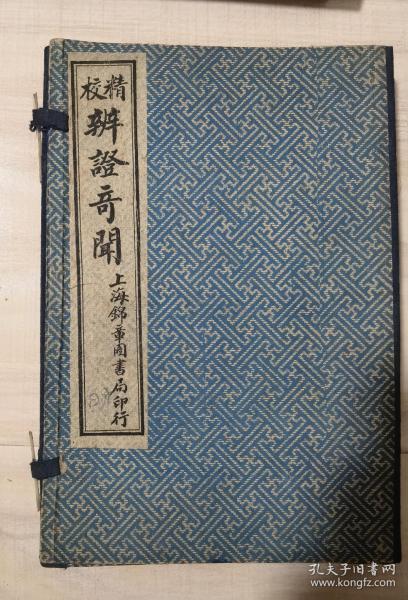 精校
辨證奇聞
上海錦章圖書局印行
孔夫子旧书网
www.kongfz.com